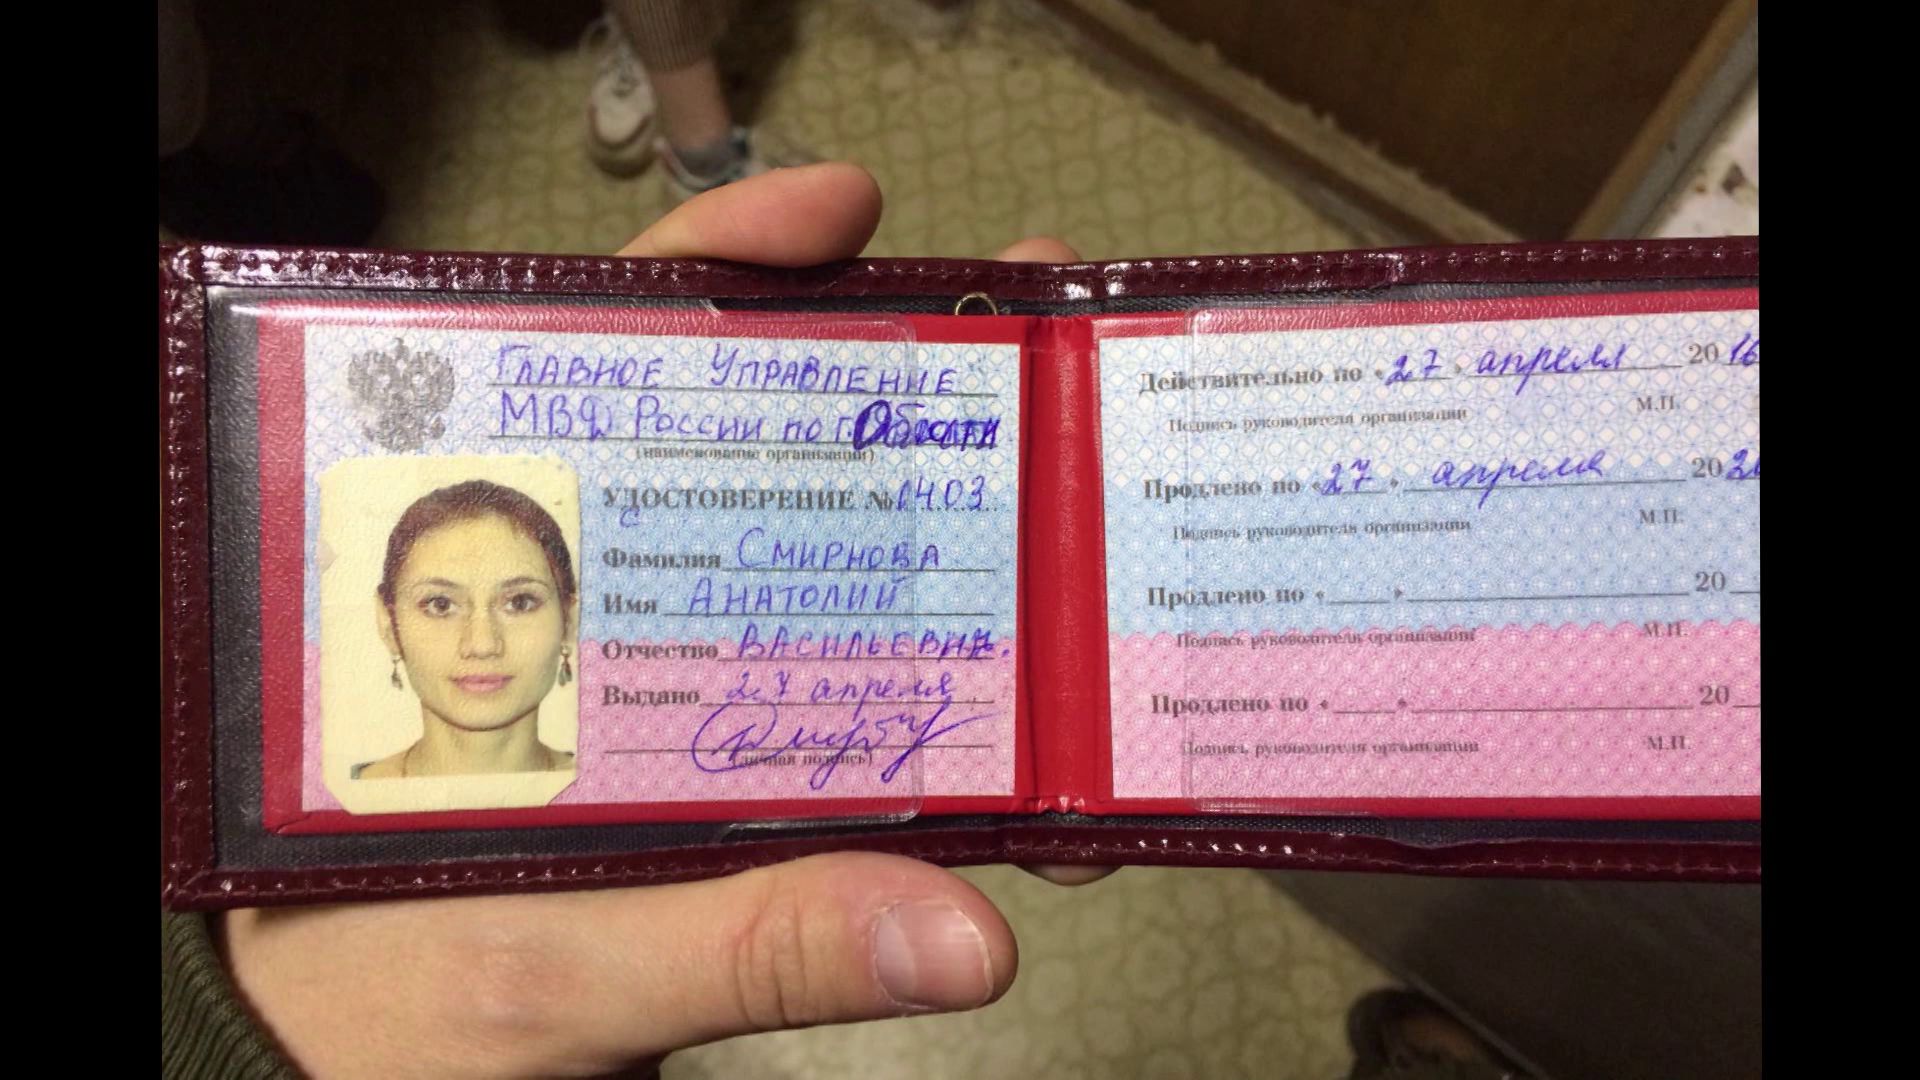 Главное Управление
МВД России по г. Области
(наименование организации)
УДОСТОВЕРЕНИЕ № 1403
С
Фамилия Смирнова
Имя Анатолий
Отчество Васильевич.
Выдано 27 апреля
(личная подпись)
Действительно по «27» апреля 2016
Подпись руководителя организации М.П.
Продлено по «27» апреля 202
Подпись руководителя организации М.П.
Продлено по « » 20
Подпись руководителя организации М.П.
Продлено по « » 20
Подпись руководителя организации М.П.